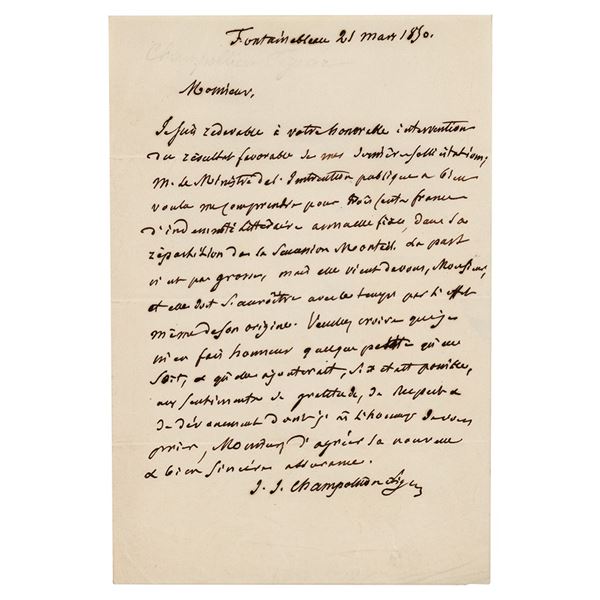 Fontainebleau 21 mars 1850.
Champollion Figeac
Monsieur,
Je suis redevable à votre honorable intervention
du résultat favorable de mes dernières sollicitations;
M. le Ministre de l'Instruction publique a bien
voulu me comprendre pour trois cents francs
d'indemnité littéraire annuelle fixe, dans la
répartition de la Succession Monteil. La part
n'est pas grosse, mais elle vient de vous, Monsieur,
et elle doit s'accroître avec le temps par l'effet
même de son origine. Veuillez croire que je
m'en fais honneur quelque petite qu'elle
soit, & qu'elle ajouterait, si c'était possible,
aux sentiments de gratitude, de respect &
de dévouement dont j'ai l'honneur de vous
prier, Monsieur, d'agréer la nouvelle
& bien sincère assurance.
J. J. Champollion Figeac